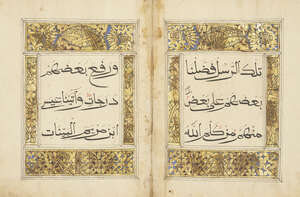 تلك الرسل فضلنا
بعضهم على بعض
منهم من كلم الله
ورفع بعضهم
درجات وآتينا عيسى
ابن مريم البينات